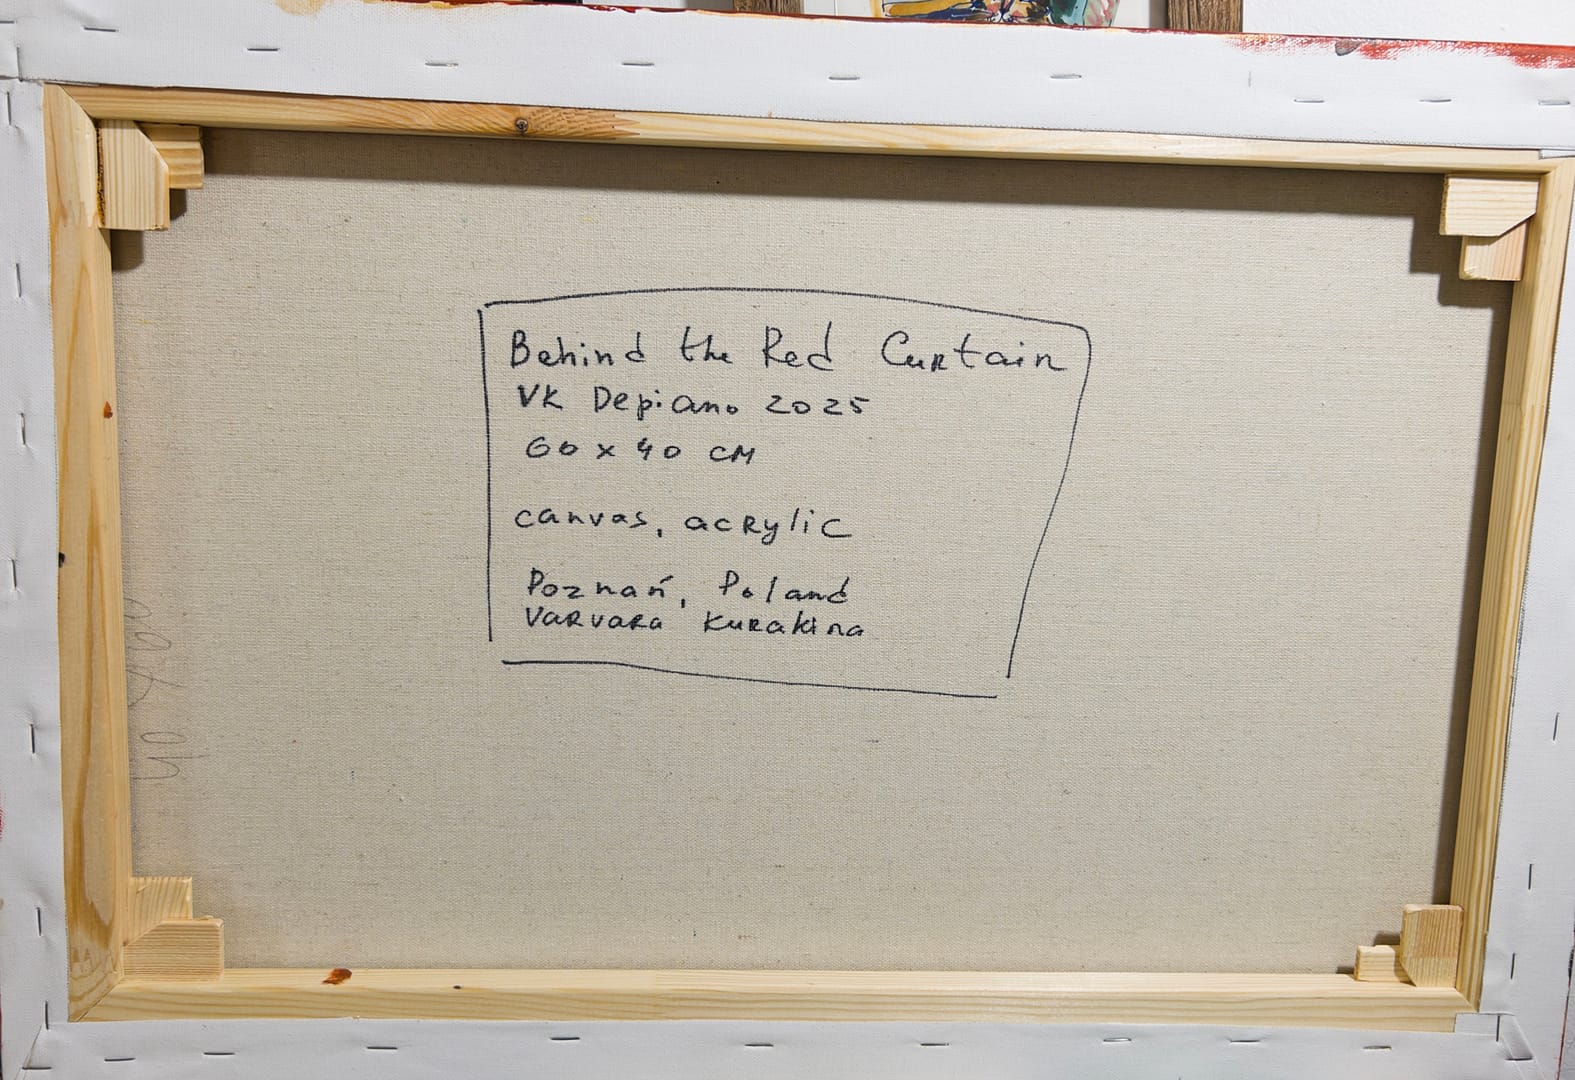 Behind the Red Curtain
VK Depiano 2025
60 x 40 CM
canvas, acrylic
Poznań, Poland
Varvara Kurakina
40 x 60